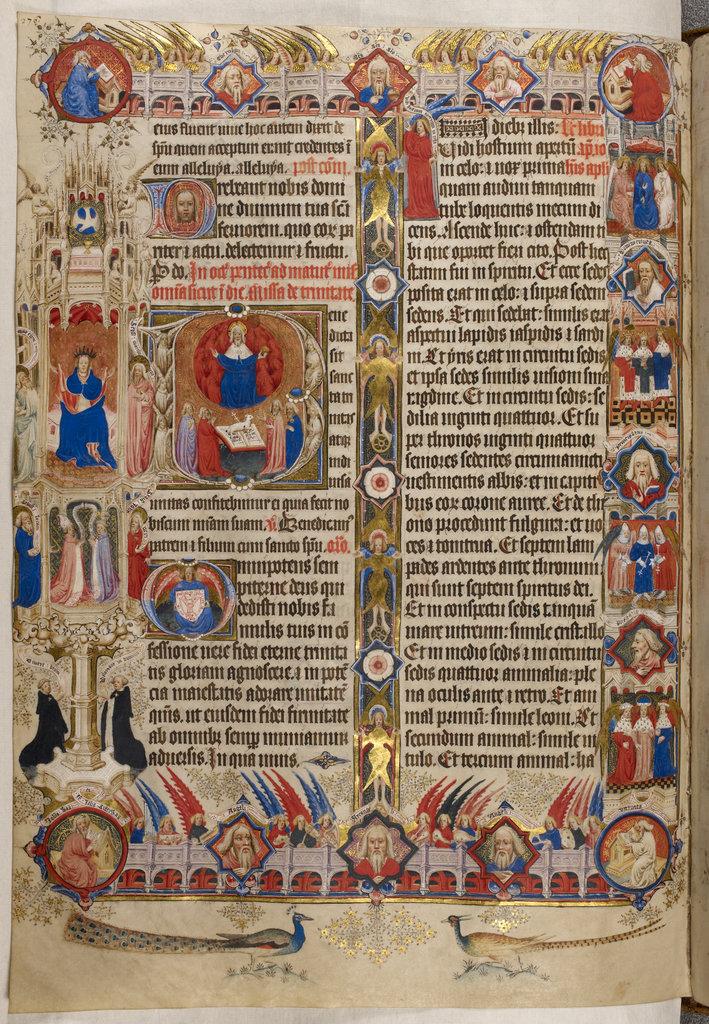 276
eius fluent uiue hoc autem dixit de
spū quem accepturi erant credentes ī
eum alleluya. alleluya. post cōm.
Prebeant nobis domi
ne diuinum tua scā
feruorem. quo eoꝝ pa
riter & actu. delectemur & fructu.
In oct penteč ad matuť
omnia sicut ī die. Missa de trinitate
Bene
dicta
sit
sanc
ta tri
nitas
atqȝ
indi
uisa
unitas confitebimur ei quia fecit no
biscum miam suam. V. Benedicam'
patrem & filium cum sancto spū. orō.
Omnipotens sem
piterne deus qui
dedisti nobis fa
mulis tuis in cō
fessione uere fidei eterne trinita
tis gloriam agnoscere. & in potē
cia maiestatis adorare unitatē
qūs. ut eiusdem fidei firmitate
ab omnibȝ semp muniamur
aduersis. In qua unus.
In diebȝ illis: Lc̄ libri
Uidi hostium apertū apoc
in celo: & uox prima his apli
quam audiui tanquam
tube loquentis mecum di
cens. Ascende huc: & ostendam ti
bi que oportet fieri cito. Post hec
statim fui in spiritu. Et ecce sedes
posita erat in celo: & supra sedem
sedens. Et qui sedebat: similis erat
aspectui lapidis iaspidis & sardi
ni. Et yris erat in circuitu sedis
et ipsa sedes similis uisioni sma
ragdine. Et in circuitu sedis: se
dilia uiginti quattuor. Et su
per thronos uiginti quattuor
seniores sedentes circumamicti
uestimentis albis: et in capiti
bus eoꝝ corone auree. Et de thr
ono procedunt fulgura: et uo
ces & tonitrua. Et septem lam
pades ardentes ante thronum
qui sunt septem spiritus dei.
Et in conspectu sedis tanquā
mare uitreum: simile cristallo
Et in medio sedis & in circuitu
sedis quattuor animalia: ple
na oculis ante & retro. Et ani
mal primū: simile leoni. Et
secundum animal: simile ui
tulo. Et tercium animal: ha